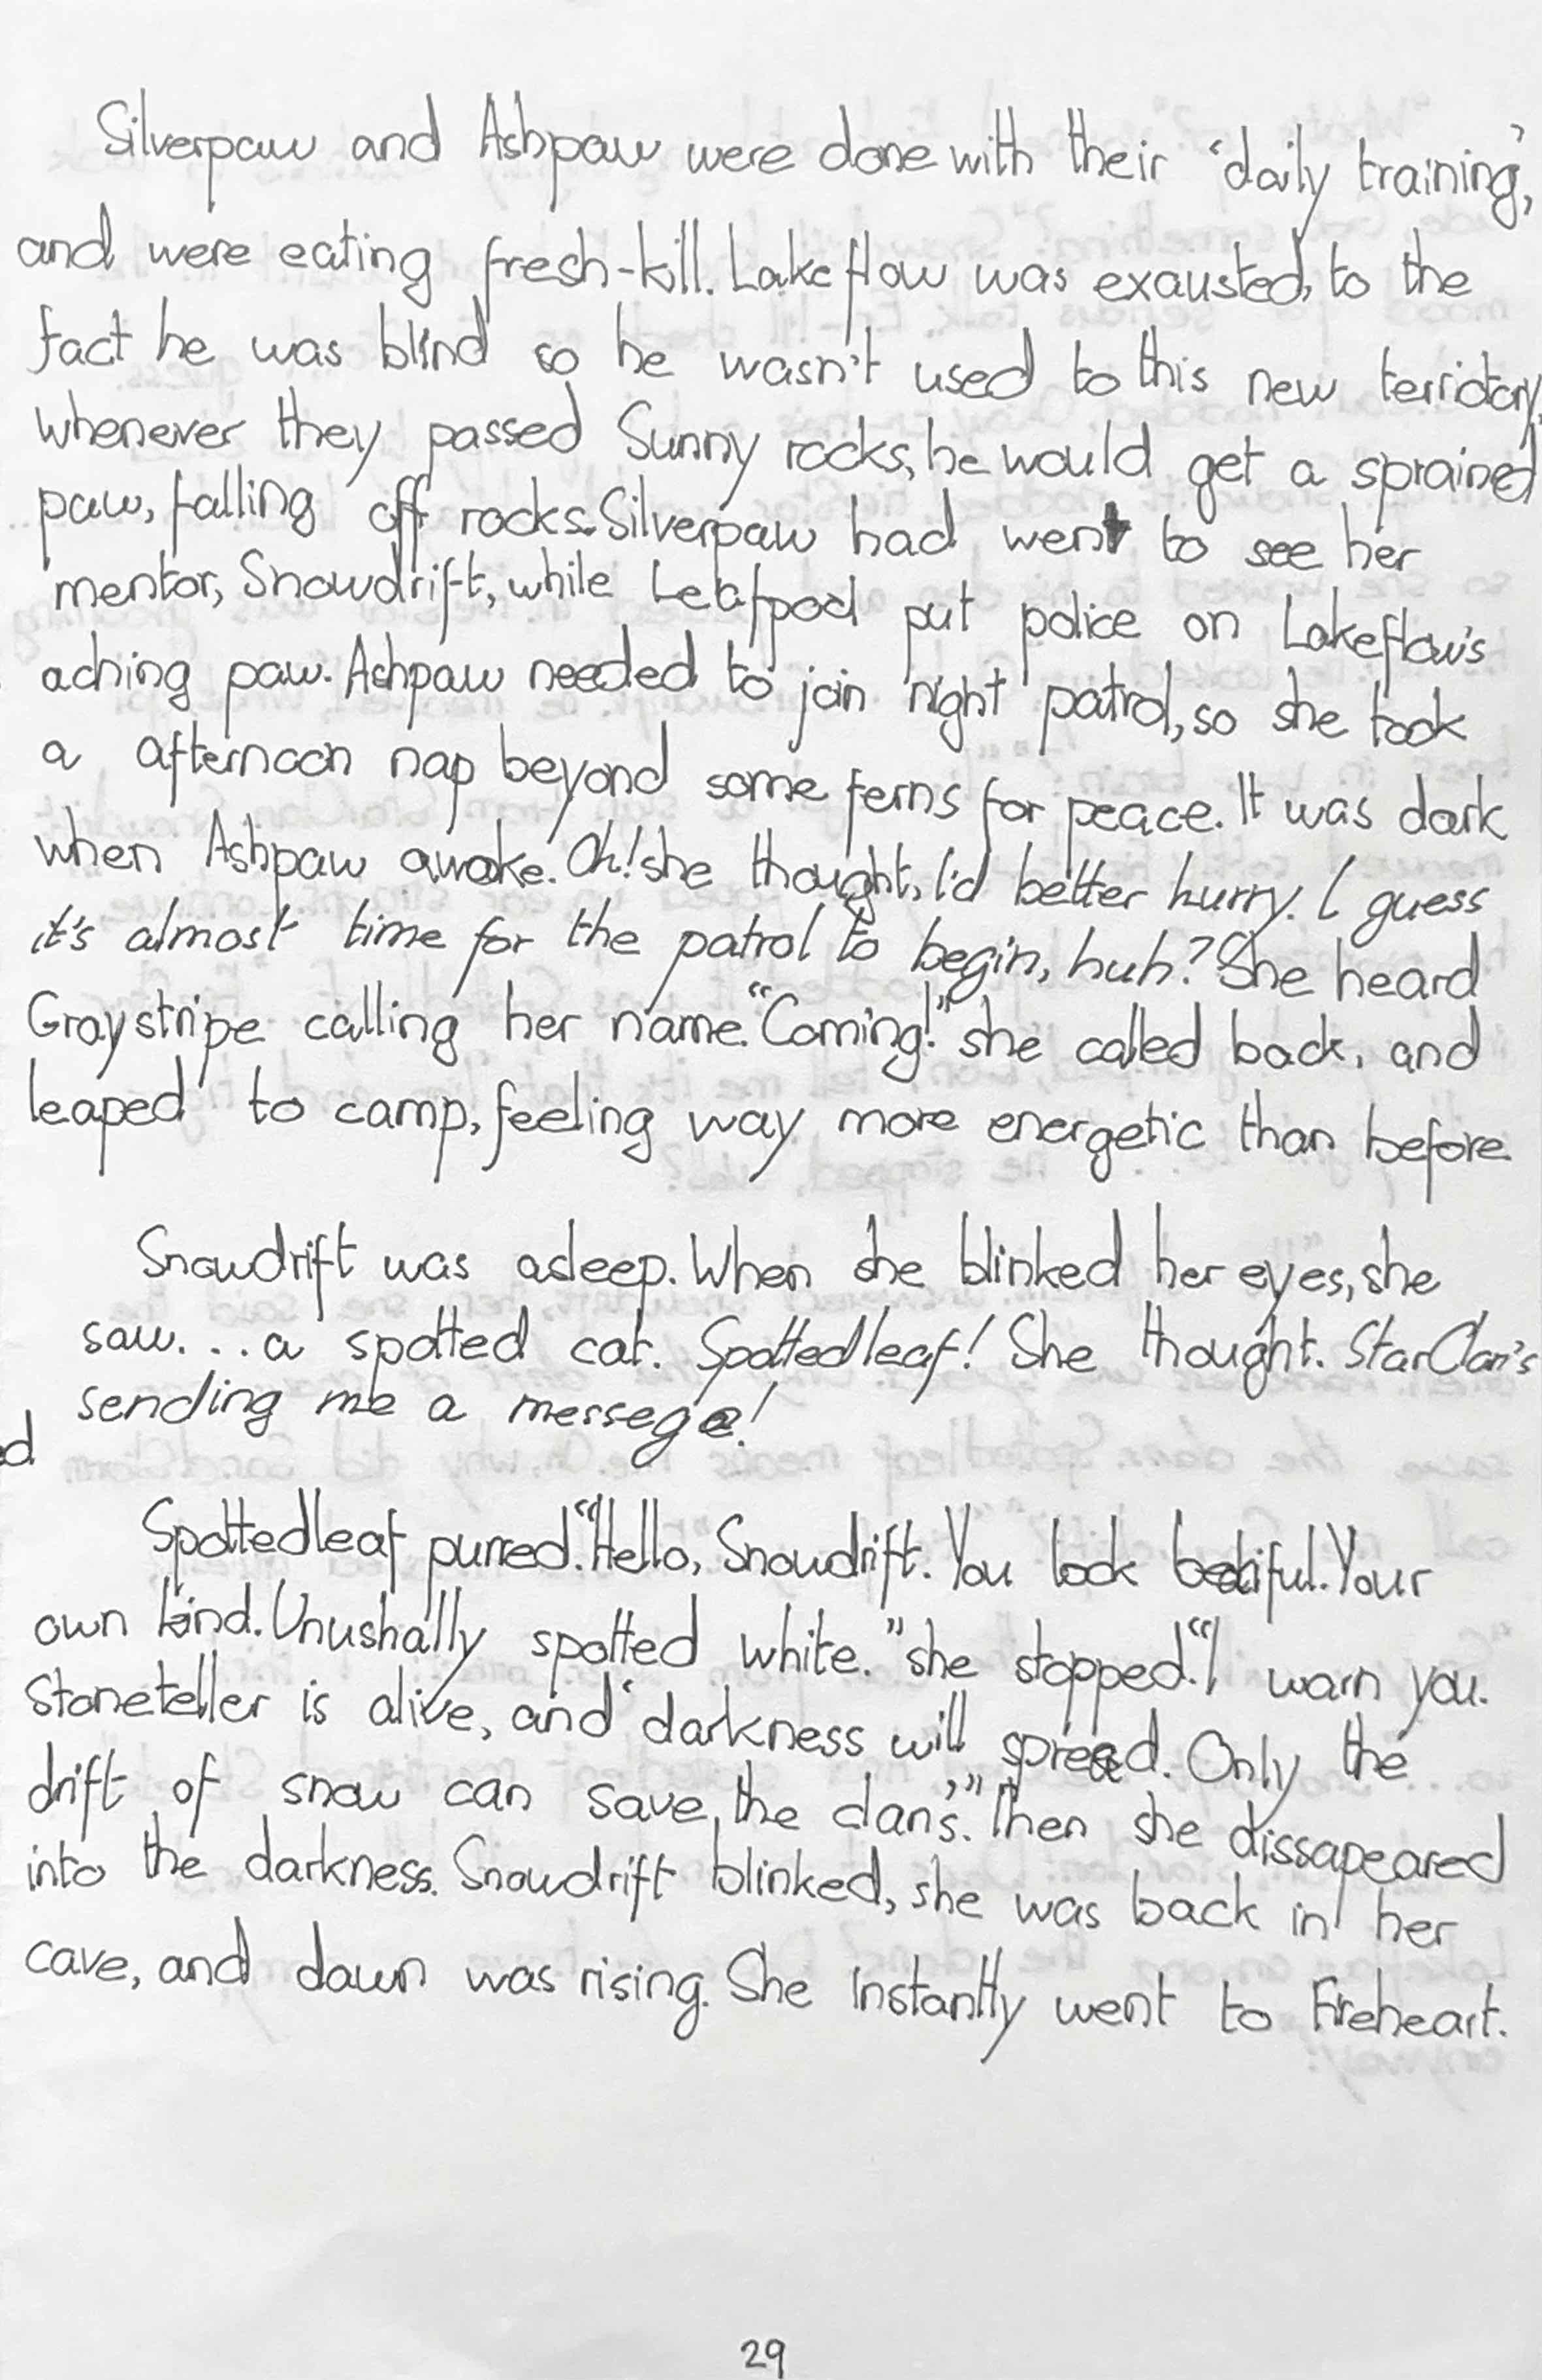 Silverpaw and Ashpaw were done with their 'daily training',
and were eating fresh-kill. Lakeflow was exausted, to the
fact he was blind so he wasn't used to this new territory,
whenever they passed Sunny rocks, he would get a sprained
paw, falling off rocks. Silverpaw had went to see her
mentor, Snowdrift, while Leafpool put police on Lakeflow's
aching paw. Ashpaw needed to join night patrol, so she took
a afternoon nap beyond some ferns for peace. It was dark
when Ashpaw awoke. Oh! she thought, I'd better hurry. I guess
it's almost time for the patrol to begin, huh? She heard
Graystripe calling her name. "Coming!" she called back, and
leaped to camp, feeling way more energetic than before.
Snowdrift was asleep. When she blinked her eyes, she
saw... a spotted cat. Spottedleaf! She thought. StarClan's
sending me a messege!
Spottedleaf purred. "Hello, Snowdrift. You look beatiful. Your
own kind. Unushally spotted white." she stopped. "I warn you.
Stoneteller is alive, and 'darkness will spread. Only the
drift of snow can save the clans.'" Then she dissapeared
into the darkness. Snowdrift blinked, she was back in her
cave, and dawn was rising. She instantly went to Fireheart.
29